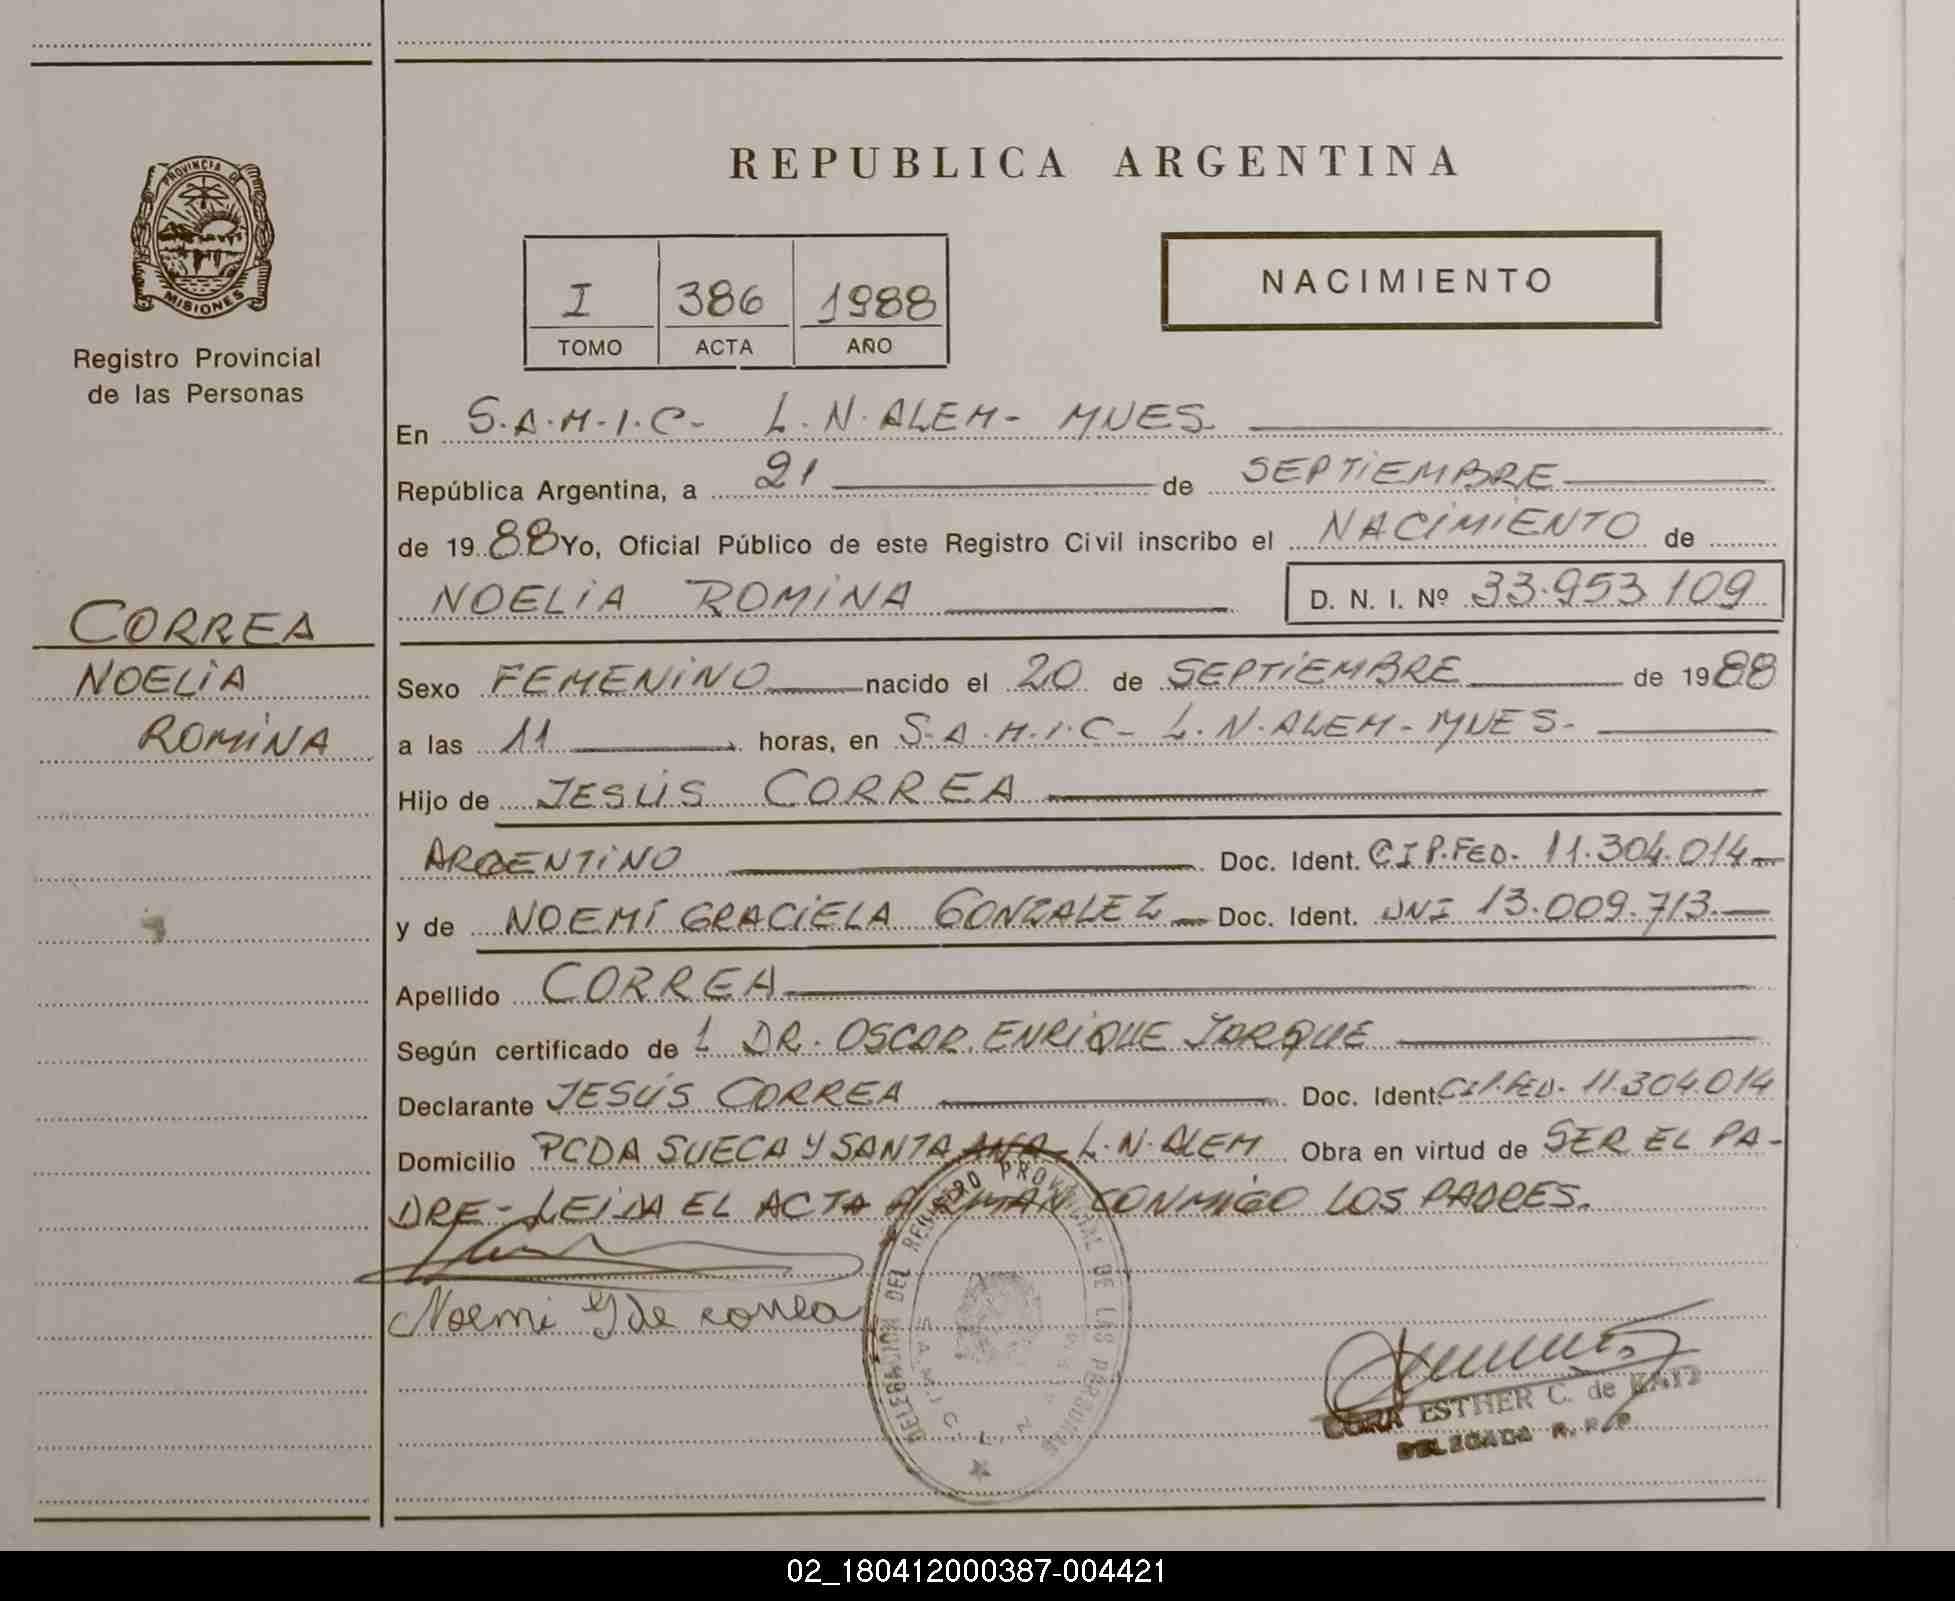 PROVINCIA DE
MISIONES
Registro Provincial
de las Personas
CORREA
NOELIA
ROMINA
REPUBLICA ARGENTINA
I 386 1988
TOMO ACTA AÑO
NACIMIENTO
En S.A.M.I.C- L.N.ALEM- MNES
República Argentina, a 21 de SEPTIEMBRE
de 1988 Yo, Oficial Público de este Registro Civil inscribo el NACIMIENTO de
NOELIA ROMINA D. N. I. Nº 33.953.109
Sexo FEMENINO nacido el 20 de SEPTIEMBRE de 1988
a las 11 horas, en S.A.M.I.C- L.N.ALEM-MNES-
Hijo de JESÚS CORREA
ARGENTINO Doc. Ident. CIP.FED. 11.304.014
y de NOEMÍ GRACIELA GONZALEZ Doc. Ident. DNI 13.009.713
Apellido CORREA
Según certificado de 1 DR. OSCAR ENRIQUE
Declarante JESÚS CORREA Doc. Ident. CIP.FED. 11.304.014
Domicilio PCDA SUECA Y SANTA ANA L.N.ALEM Obra en virtud de SER EL PA-
DRE- LEIDA EL ACTA FIRMAN CONMIGO LOS PADRES.
Noemi G de correa
DELEGACION DEL REGISTRO PROVINCIAL DE LAS PERSONAS
S.A.M.I.C.
ESTHER C. de
DELEGADA R. P. P.
02_180412000387-004421